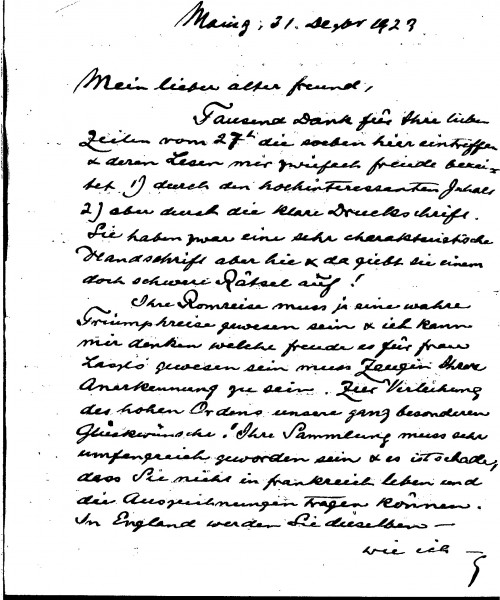 Mainz, 31. Dezbr 1923
Mein lieber alter Freund,
Tausend Dank für Ihre lieben
Zeilen vom 27t die soeben hier eintreffen
& deren Lesen mir zwiefach Freude berei-
tet 1) durch den hochinteressanten Inhalt
2) aber durch die klare Druckschrift.
Sie haben zwar eine sehr charakteristische
Handschrift aber hie & da giebt sie einem
doch schwere Rätsel auf!
Ihre Romreise muss ja eine wahre
Triumphreise gewesen sein & ich kann
mir denken welche Freude es für Frau
László gewesen sein muss Zeugin Ihrer
Anerkennung zu sein. Zur Verleihung
des hohen Ordens unsere ganz besonderen
Glückwünsche! Ihre Sammlung muss sehr
umfangreich geworden sein & es ist schade,
dass Sie nicht in Frankreich leben und
die Auszeichnungen tragen können.
In England werden Sie dieselben —
wie ich —